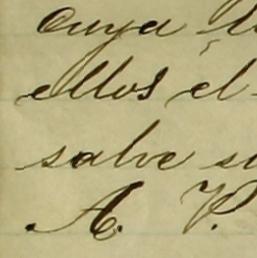 cuya
ellos el
salve su
A. P.